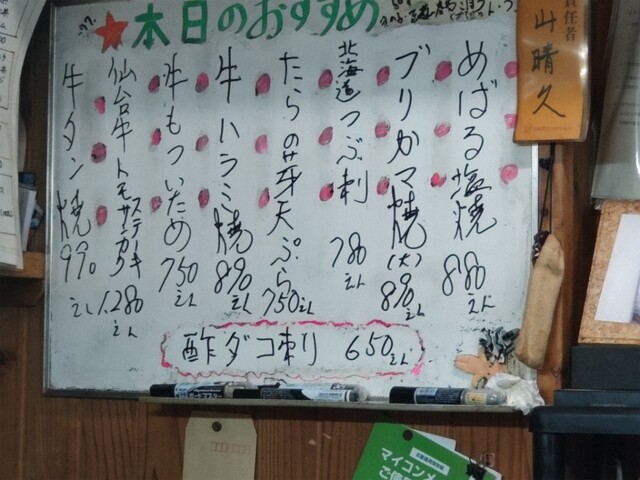 本日のおすすめ
めばる塩焼 880えん
ブリカマ焼(大) 890えん
北海道つぶ刺 780えん
たらの芽天ぷら 750えん
牛ハラミ焼 890えん
牛もついため 750えん
仙台牛トモサンカク ステーキ 1,280えん
牛タン焼 990えん
酢ダコ刺り 650えん
責任者
山晴久
マイコンメ